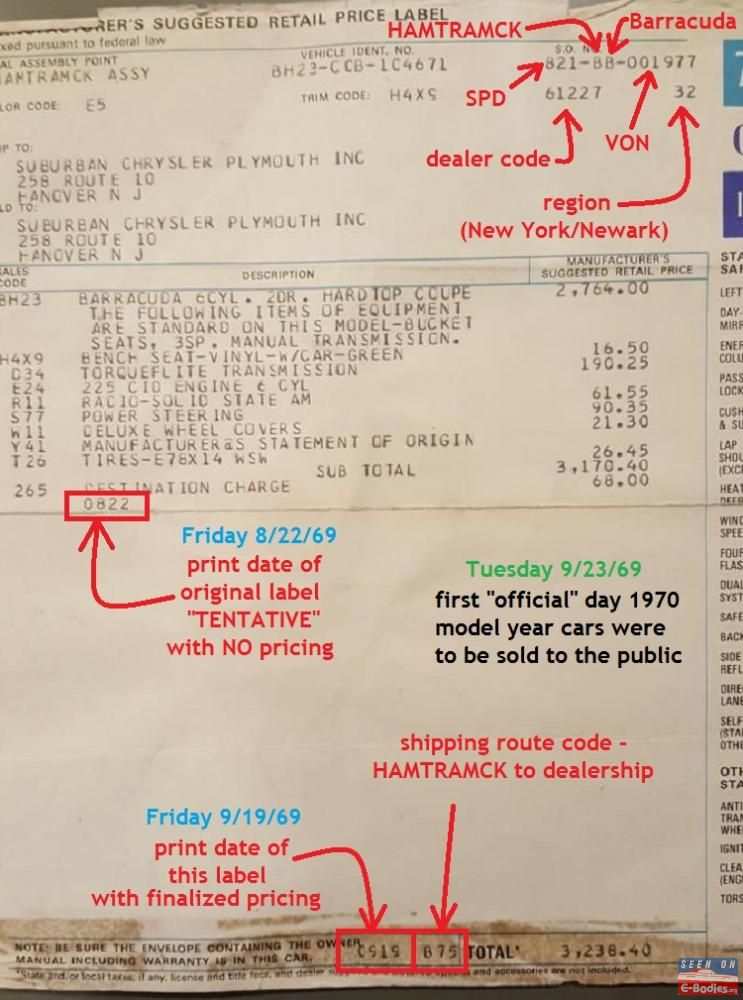 RER'S SUGGESTED RETAIL PRICE LABEL
xed pursuant to federal law
HAMTRAMCK
Barracuda
AL ASSEMBLY POINT
VEHICLE IDENT. NO.
S.O. N
HAMTRAMCK ASSY
BH23-CCB-1C4671
821-BB-001977
LOR CODE: E5
TRIM CODE: H4X9
61227 32
SPD
VON
dealer code
region
(New York/Newark)
IP TO:
SUBURBAN CHRYSLER PLYMOUTH INC
258 ROUTE 10
HANOVER N J
LD TO:
SUBURBAN CHRYSLER PLYMOUTH INC
258 ROUTE 10
HANOVER N J
SALES CODE
DESCRIPTION
MANUFACTURER'S SUGGESTED RETAIL PRICE
BH23 BARRACUDA 6CYL. 2DR. HARDTOP COUPE 2,764.00
THE FOLLOWING ITEMS OF EQUIPMENT
ARE STANDARD ON THIS MODEL-BUCKET
SEATS, 3SP. MANUAL TRANSMISSION.
H4X9 BENCH SEAT-VINYL-W/CAR-GREEN 16.50
D34 TORQUEFLITE TRANSMISSION 190.25
E24 225 CID ENGINE 6 CYL
R11 RADIO-SOLID STATE AM 61.55
S77 POWER STEERING 90.35
W11 DELUXE WHEEL COVERS 21.30
Y41 MANUFACTURER&S STATEMENT OF ORIGIN
T26 TIRES-E78X14 WSW 26.45
SUB TOTAL 3,170.40
265 DESTINATION CHARGE 68.00
0822
Friday 8/22/69
print date of
original label
"TENTATIVE"
with NO pricing
Tuesday 9/23/69
first "official" day 1970
model year cars were
to be sold to the public
shipping route code -
HAMTRAMCK to dealership
Friday 9/19/69
print date of
this label
with finalized pricing
NOTE: BE SURE THE ENVELOPE CONTAINING THE OWNER
MANUAL INCLUDING WARRANTY IS IN THIS CAR.
C919 B75 TOTAL* 3,238.40
*State and/or local taxes, if any, license and title fees, and dealer and accessories are not included.
STA
SAF
LEFT
DAY-
MIRR
ENER
COLU
PASS
LOCK
CUSH
& SU
LAP
SHOU
(EXC
HEAT
DEFR
WIND
SPEE
FOUR
FLAS
DUAL
SYST
SAFE
BACK
SIDE
REFL
DIRE
LANE
SELF
(STA
OTHE
OTH
STA
ANTI
TRAN
WHE
IGNIT
CLEA
(ENG
TORS
SEEN ON
E-Bodies.org